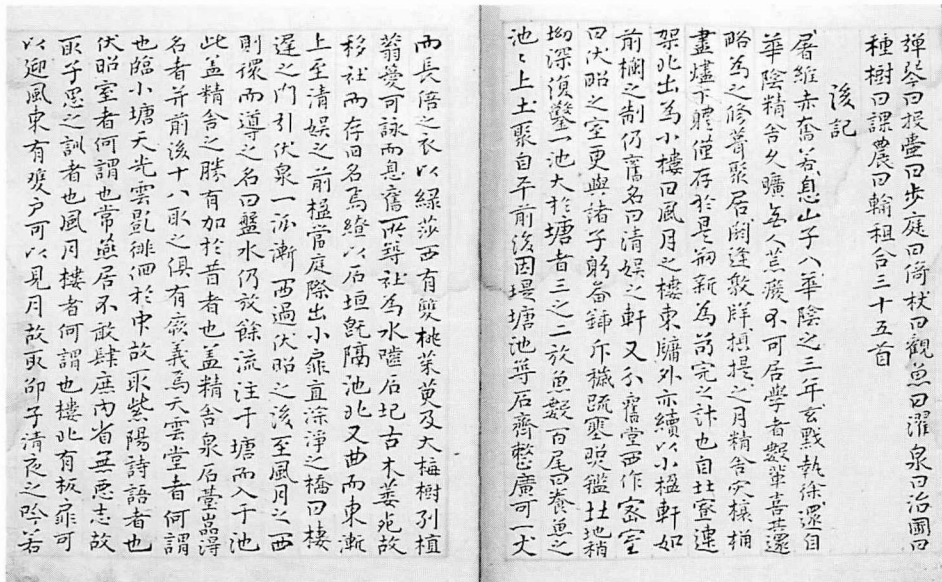 彈琴曰投壺曰步庭曰倚杖曰觀魚曰濯泉曰治圃曰
種樹曰課農曰輸租合三十五首
後記
屠維赤奮若息山子入華陰之三年玄戰執徐還自
華陰精舍久曠無人荒癈不可居學者數輩喜其還
略為之修葺聚居閼逢敦牂攝提之月精舍灾榱桷
盡燼下軆僅存於是剏新為苟完之計也自北寮連
架北出為小樓曰風月之樓東牖外亦續以小楹軒如
前欄之制仍舊名曰清娛之軒又分舊堂西作密室
曰伏昭之室更與諸子躬畚鍤斥穢疏塞堗鑑北地稍
坳深復鑿一池大於塘者三之二放魚數百尾曰養魚之
池〻上土聚自平前後因堤塘池等石齊整廣可一丈
而長倍之衣以綠莎西有雙桃茱萸及大梅樹列植
蓊蔓可詠而息舊所等社為水囓石圮古木萎死故
移社而存舊名焉繚以石垣既隔池北又曲而東漸
上至清娛之前楹當庭際出小扉直淙淨之橋曰棲
遲之門引伏泉一派漸西過伏昭之後至風月之西
則環而導之名曰盤水仍放餘流注于塘而入于池
此盖精舍之勝有加於昔者也盖精舍泉石臺畾淂
名者并前後十八取之俱有嵗義焉天雲堂者何謂
也臨小塘天光雲影徘徊於中故取紫陽詩語者也
伏昭室者何謂也常燕居不敢肆庶內省無惡志故
取子思之訓者也風月樓者何謂也樓北有板扉可
以迎風東有雙戶可以見月故取邵子清夜之吟若